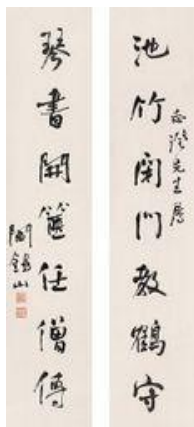 池竹閉門教鶴守
先生
琴書開篋任僧傳
閻錫山